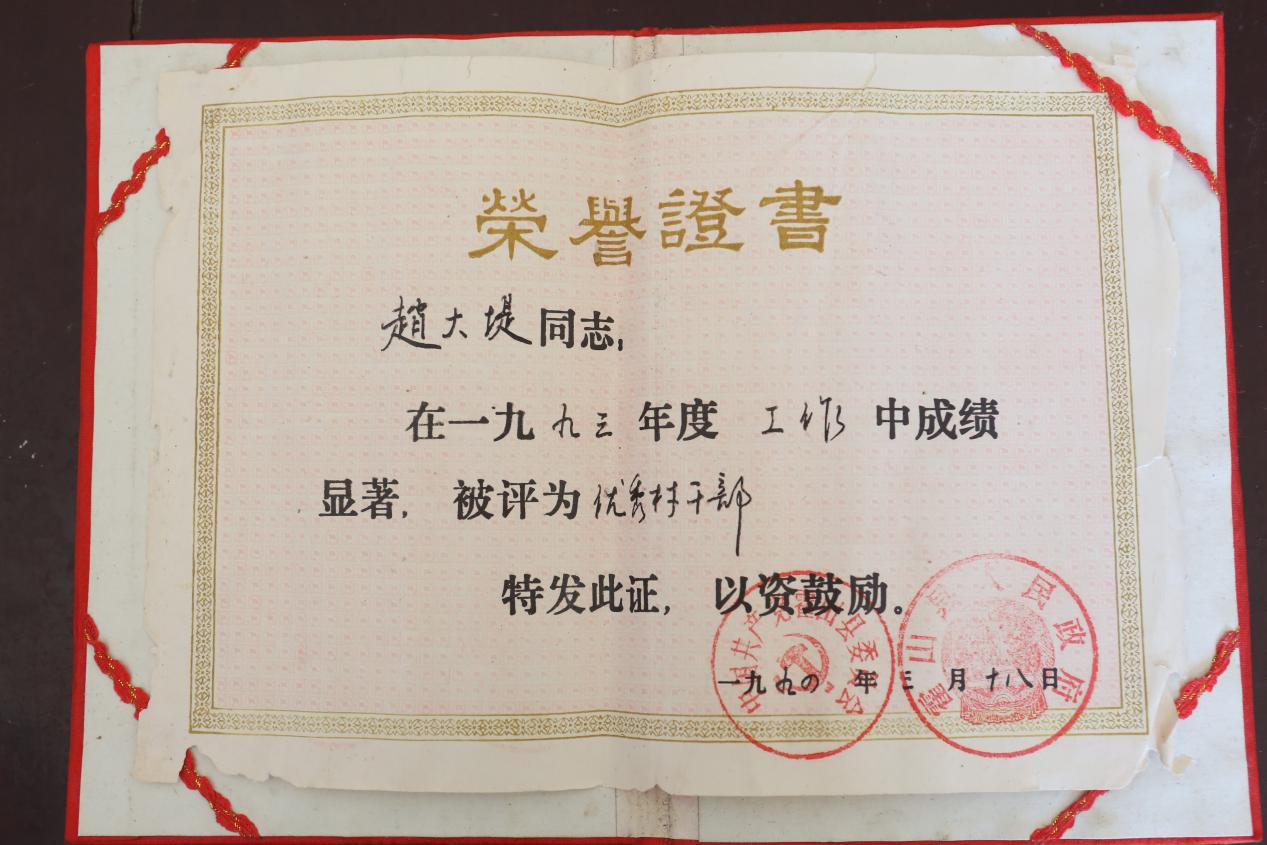 榮譽證書
趙大堤同志:
在一九九三年度 工作 中成绩
显著, 被评为优秀村干部
特发此证, 以资鼓励。
一九九四年三月十八日
中国共产党霍山县委员会
霍山县人民政府